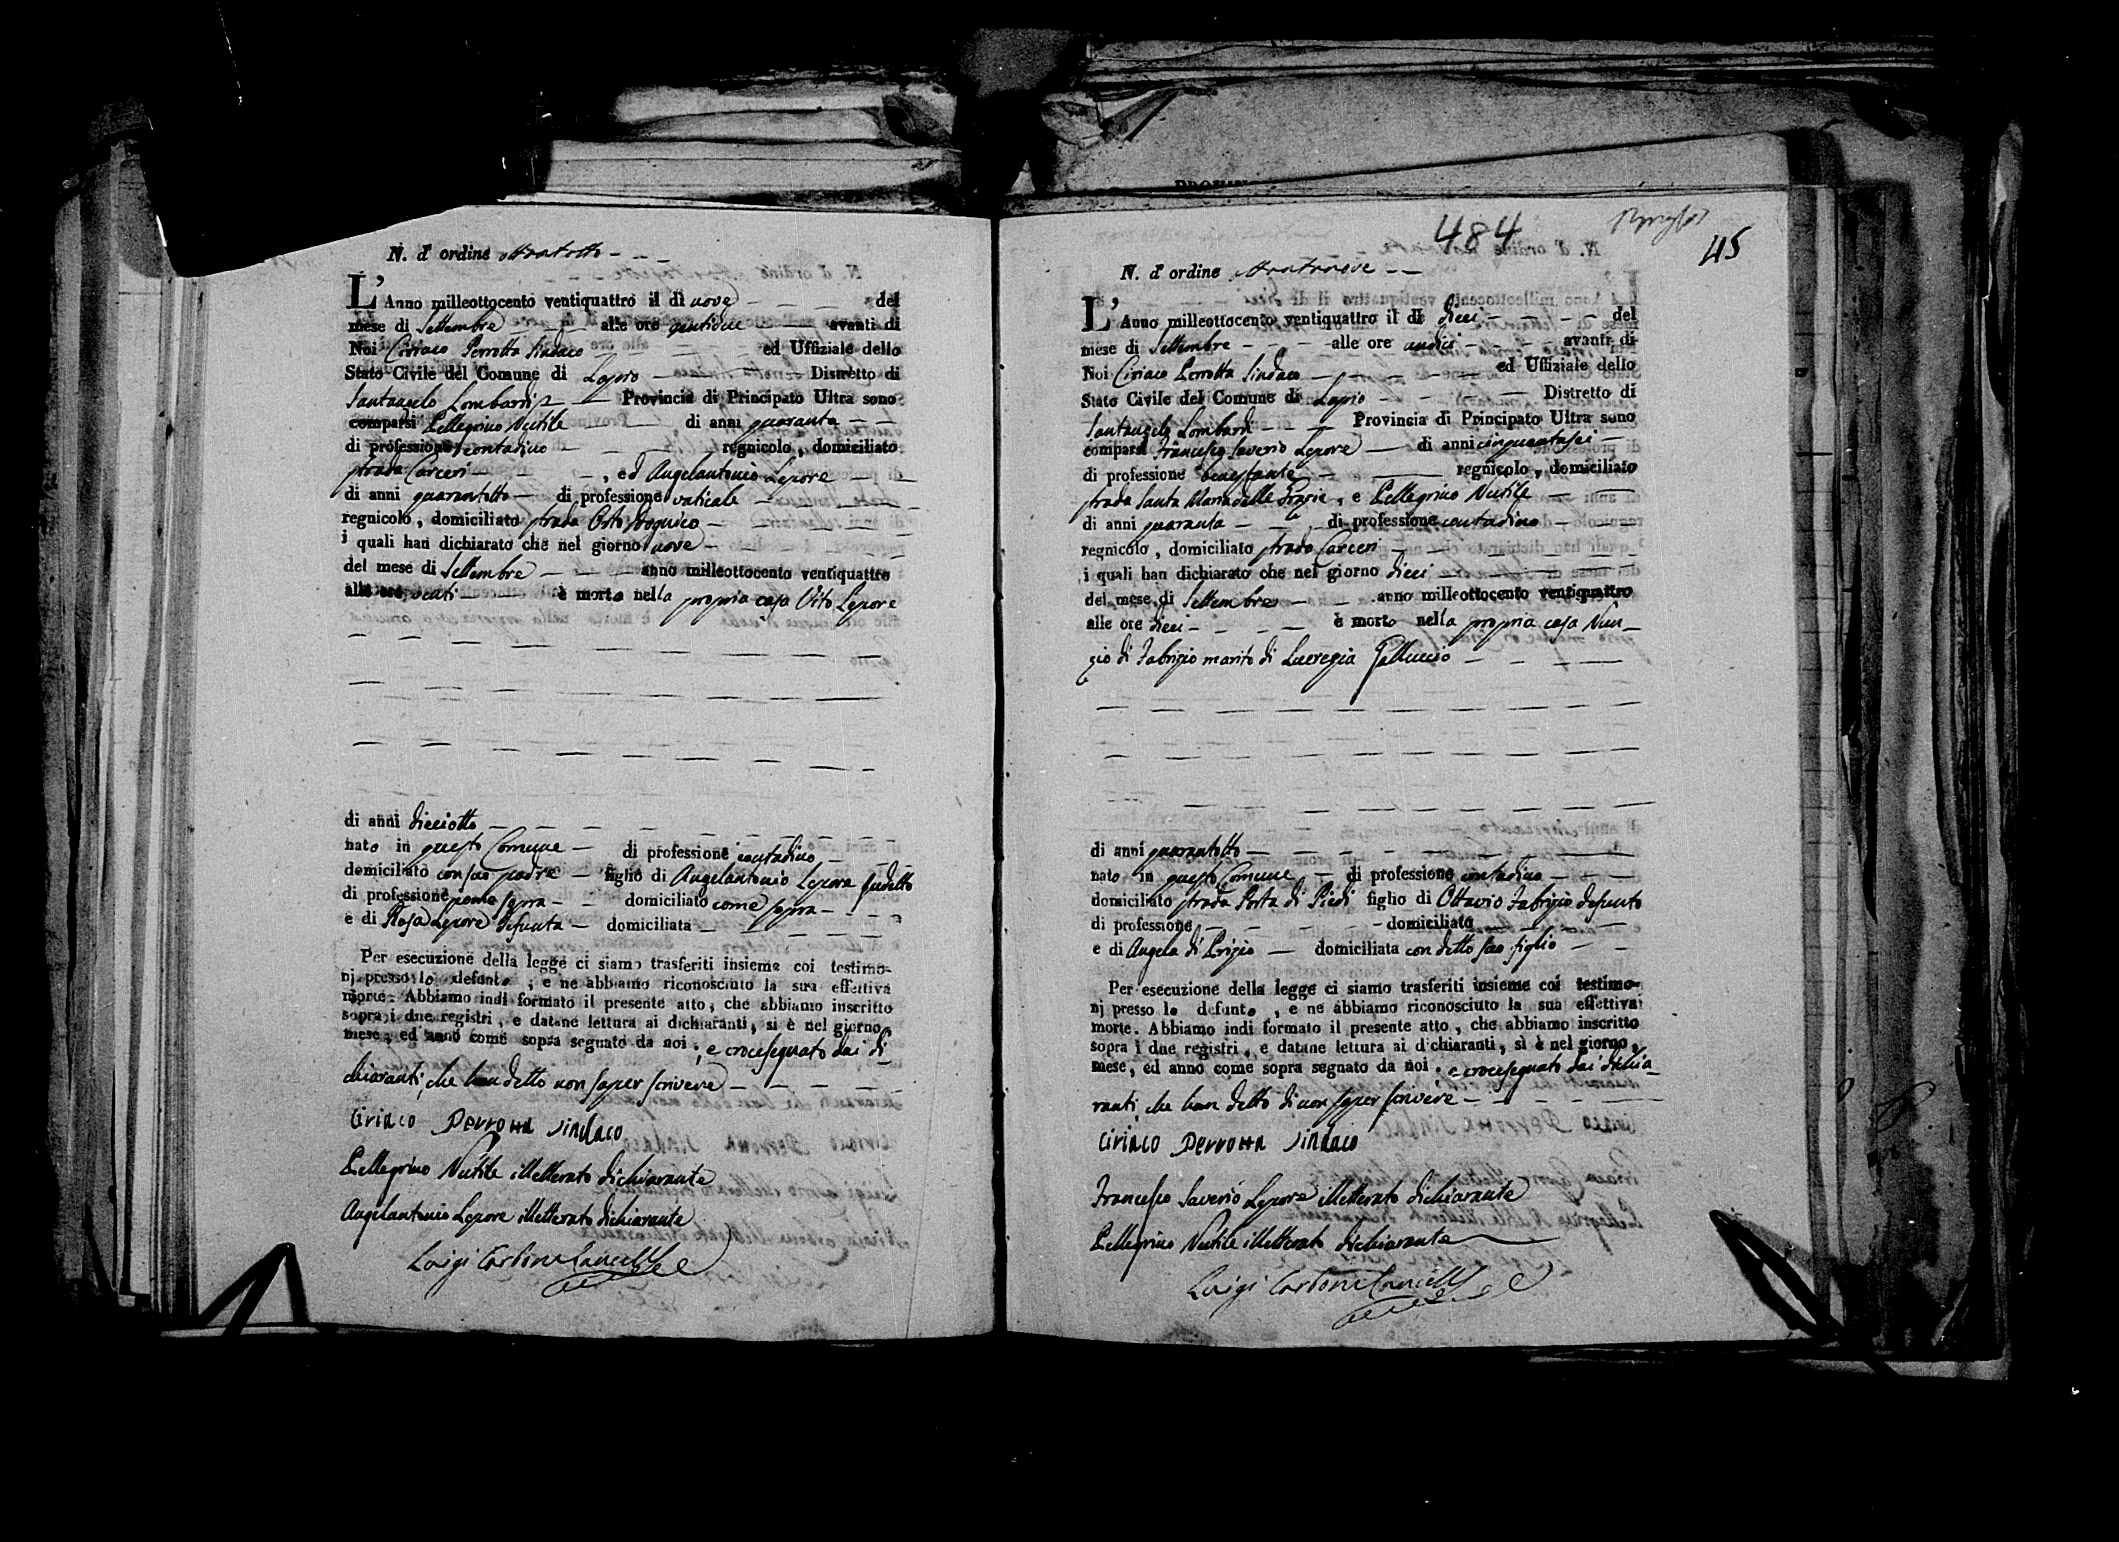 N. d' ordine ottantotto
L' Anno milleottocento ventiquattro il dì nove del
mese di Settembre alle ore ventidue avanti di
Noi Ciriaco Perrotta Sindaco ed Uffiziale dello
Stato Civile del Comune di Lapio Distretto di
Santangelo Lombardi Provincia di Principato Ultra sono
comparsi Pellegrino Nutile di anni quaranta
di professione contadino regnicolo, domiciliato
strada Carceri, ed Angelantonio Lepore
di anni quarantotto di professione vaticale
regnicolo, domiciliato strada Orto
i quali han dichiarato che nel giorno nove
del mese di Settembre anno milleottocento ventiquattro
alle ore venti è morto nella propria casa Vito Lepore
di anni dieciotto
nato in questo Comune di professione contadino
domiciliato con suo padre figlio di Angelantonio Lepore sudetto
di professione come sopra domiciliato come sopra
e di Rosa Lepore defunta domiciliata
Per esecuzione della legge ci siamo trasferiti insieme coi testimo-
nj presso lo defunto, e ne abbiamo riconosciuto la sua effettiva
morte. Abbiamo indi formato il presente atto, che abbiamo inscritto
sopra i due registri, e datane lettura ai dichiaranti, si è nel giorno,
mese, ed anno come sopra segnato da noi, e crocesegnato dai di
chiaranti, che han detto non saper scrivere
Ciriaco Perrotta Sindaco
Pellegrino Nutile illetterato dichiarante
Angelantonio Lepore illetterato dichiarante
Luigi Carbone Cancelle
484
45
N. d' ordine ottantanove
L' Anno milleottocento ventiquattro il dì dieci del
mese di Settembre alle ore undici avanti di
Noi Ciriaco Perrotta Sindaco ed Uffiziale dello
Stato Civile del Comune di Lapio Distretto di
Santangelo Lombardi Provincia di Principato Ultra sono
comparsi Francesco Saverio Lepore di anni cinquantasei
di professione benestante regnicolo, domiciliato
strada Santa Maria delle Grazie, e Pellegrino Nutile
di anni quaranta di professione contadino
regnicolo, domiciliato strada Carceri
i quali han dichiarato che nel giorno dieci
del mese di Settembre anno milleottocento ventiquattro
alle ore dieci è morto nella propria casa Nun-
zio di Fabrizio marito di Lucrezia Galluccio
di anni quarantotto
nato in questo Comune di professione contadino
domiciliato strada Porta di Piedi figlio di Ottavio Fabrizio defunto
di professione domiciliato
e di Angela di Prizio domiciliata con detto suo figlio
Per esecuzione della legge ci siamo trasferiti insieme coi testimo-
nj presso lo defunto, e ne abbiamo riconosciuto la sua effettiva
morte. Abbiamo indi formato il presente atto, che abbiamo inscritto
sopra i due registri, e datane lettura ai dichiaranti, si è nel giorno,
mese, ed anno come sopra segnato da noi, e crocesegnato dai dichia-
ranti, che han detto di non saper scrivere
Ciriaco Perrotta Sindaco
Francesco Saverio Lepore illetterato dichiarante
Pellegrino Nutile illetterato dichiarante
Luigi Carbone Cancelle